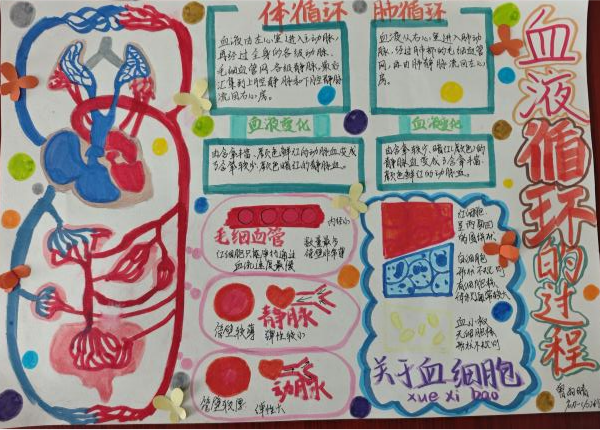 体循环
血液由左心室进入主动脉,
再经过全身的各级动脉、
毛细血管网、各级静脉,最后
汇集到上腔静脉和下腔静脉
流回右心房。
肺循环
血液从右心室进入肺动
脉,经过肺部的毛细血管
网,再由肺静脉流回左心
房。
血液变化
由含氧丰富、颜色鲜红的动脉血变成
含氧较少、颜色暗红的静脉血。
血液变化
由含氧较少、暗红(颜色)的
静脉血变成了含氧丰富、
颜色鲜红的动脉血。
内径小
毛细血管
数量最多
红细胞只能单行通过
管壁非常薄
血流速度最慢
静脉
管壁较薄
弹性较小
动脉
管壁较厚
弹性大
红细胞
是两面凹
的圆饼状
白细胞
有细胞核
血小板
无细胞核
形状不规则
关于血细胞
xue xi bao
血液循环的过程